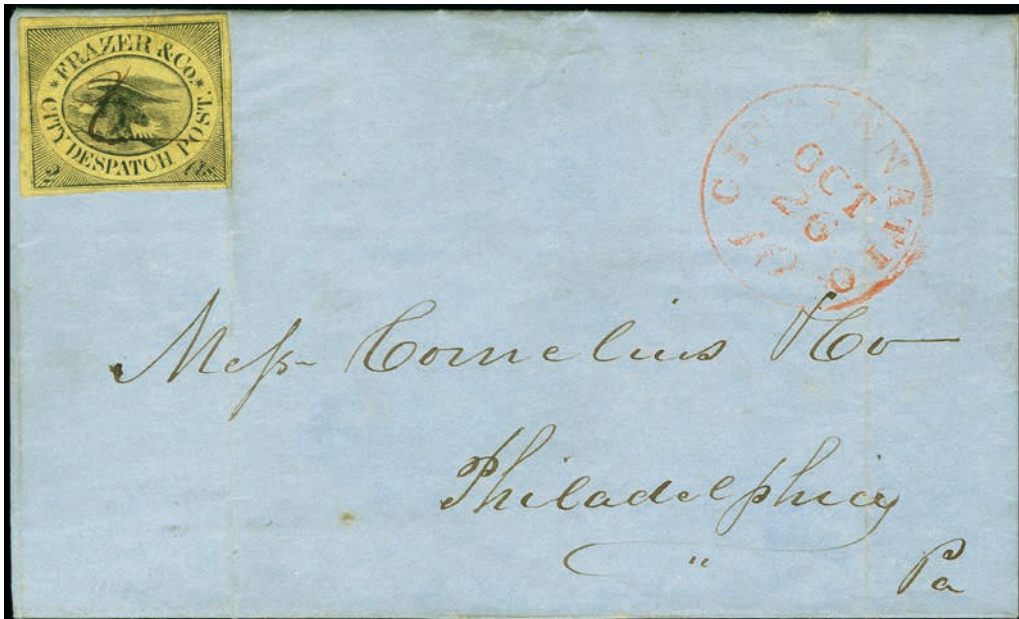 ★ FRAZER & Co. ★
CITY DESPATCH POST.
2 cts
CINCINNATI O.
OCT
26
Mess Cornelius & Co
Philadelphia
"
Pa